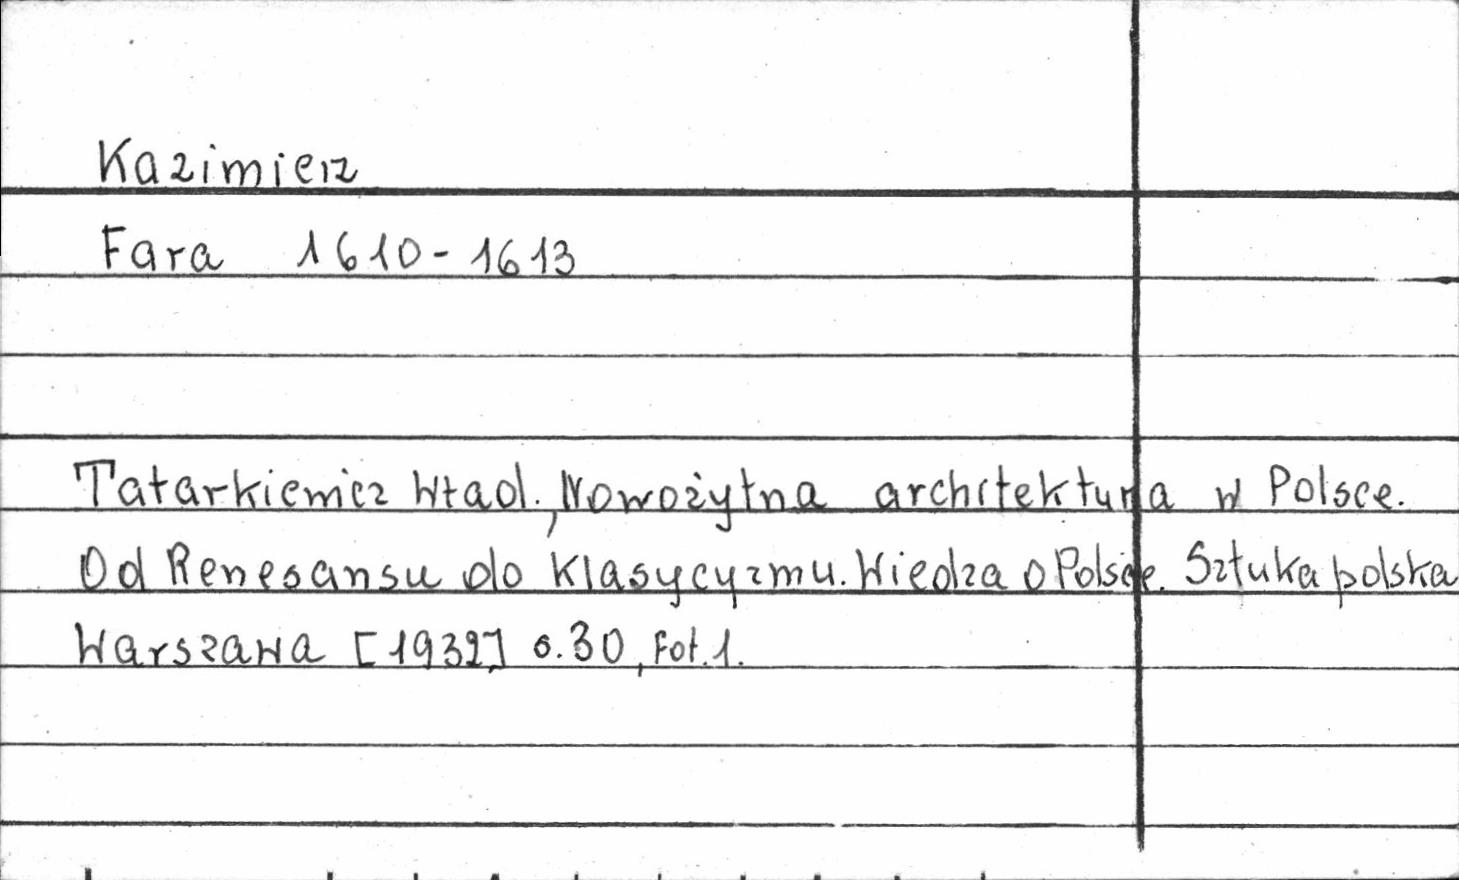 Kazimierz
Fara 1610-1613
Tatarkiewicz Wład., Nowożytna architektura w Polsce.
Od Renesansu do Klasycyzmu. Wiedza o Polsce. Sztuka polska
Warszawa [1932] s.30, Fot.1.